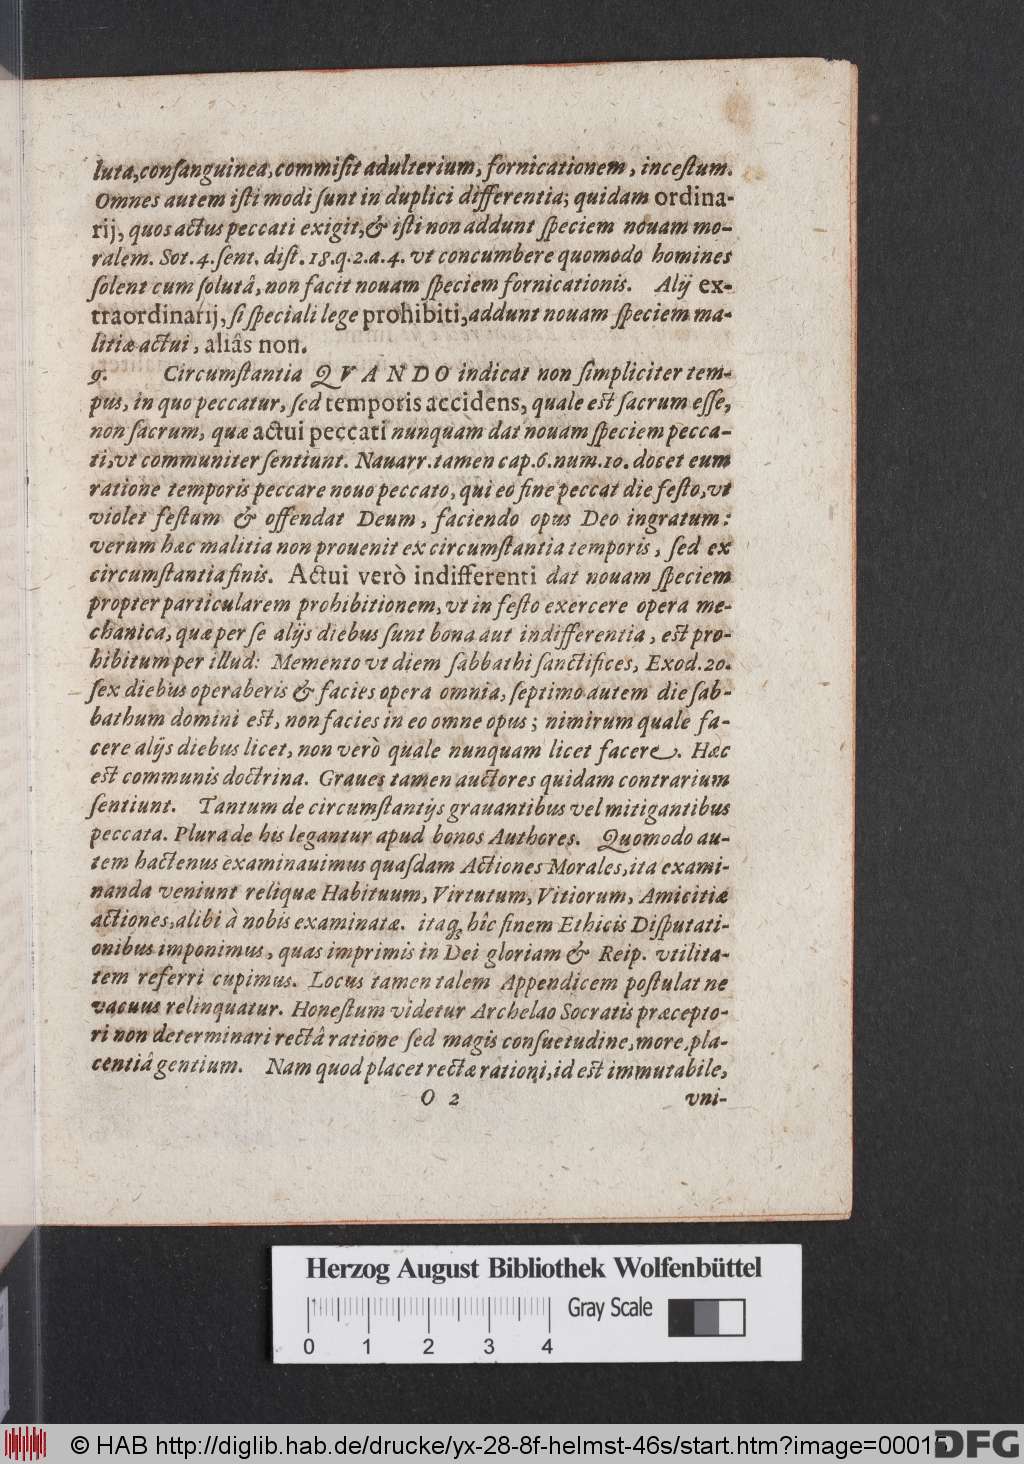 luta,conſanguinea,commiſit adulterium, fornicationem, inceſtum.
Omnes autem iſti modi ſunt in duplici differentia; quidam ordina-
rij, quos actus peccati exigit,& iſti non addunt ſpeciem nouam mo-
ralem. Sot.4.ſent. diſt.18.q.2.a.4. vt concumbere quomodo homines
ſolent cum ſolutâ, non facit nouam ſpeciem fornicationis. Alij ex-
traordinarij, ſi ſpeciali lege prohibiti, addunt nouam ſpeciem ma-
litiæ actui, aliâs non.
9. Circumſtantia QVANDO indicat non ſimpliciter tem-
pus, in quo peccatur, ſed temporis accidens, quale eſt ſacrum eſſe,
non ſacrum, quæ actui peccati nunquam dat nouam ſpeciem pecca-
ti,vt communiter ſentiunt. Nauarr.tamen cap.6.num.10. docet eum
ratione temporis peccare nouo peccato, qui eo fine peccat die feſto,vt
violet feſtum & offendat Deum, faciendo opus Deo ingratum:
verum hæc malitia non prouenit ex circumſtantia temporis, ſed ex
circumſtantia finis. Actui verò indifferenti dat nouam ſpeciem
propter particularem prohibitionem, vt in feſto exercere opera me-
chanica, quæ per ſe alijs diebus ſunt bona aut indifferentia, eſt pro-
hibitum per illud: Memento vt diem ſabbathi ſanctifices, Exod.20.
ſex diebus operaberis & facies opera omnia, ſeptimo autem die ſab-
bathum domini eſt, non facies in eo omne opus; nimirum quale fa-
cere alijs diebus licet, non verò quale nunquam licet facere. Hæc
eſt communis doctrina. Graues tamen auctores quidam contrarium
ſentiunt. Tantum de circumſtantijs grauantibus vel mitigantibus
peccata. Plura de his legantur apud bonos Authores. Quomodo au-
tem hactenus examinauimus quaſdam Actiones Morales,ita exami-
nanda veniunt reliquæ Habituum, Virtutum, Vitiorum, Amicitiæ
actiones,alibi à nobis examinatæ. itaq; hîc finem Ethicis Diſputati-
onibus imponimus, quas imprimis in Dei gloriam & Reip. vtilita-
tem referri cupimus. Locus tamen talem Appendicem poſtulat ne
vacuus relinquatur. Honeſtum videtur Archelao Socratis præcepto-
ri non determinari rectâ ratione ſed magis conſuetudine,more,pla-
centiâ gentium. Nam quod placet rectæ rationi,id eſt immutabile,
O 2 vni-
Herzog August Bibliothek Wolfenbüttel
Gray Scale
0 1 2 3 4
© HAB http://diglib.hab.de/drucke/yx-28-8f-helmst-46s/start.htm?image=00015
DFG